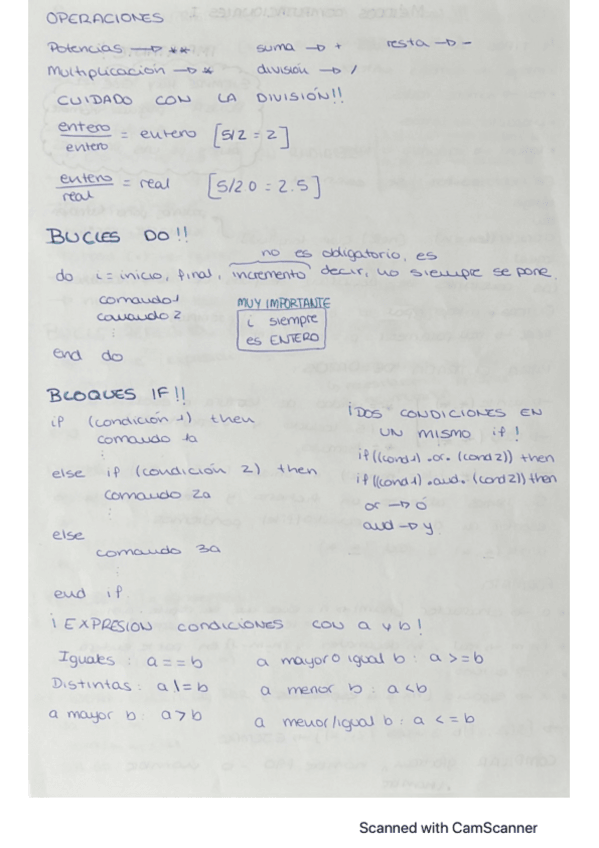 OPERACIONES
Potencias → ** suma → + resta → -
Multiplicación → * división → /
CUIDADO CON LA DIVISIÓN!!
entero/entero = entero [5/2 = 2]
entero/real = real [5/20 = 2.5]
BUCLES DO!!
no es obligatorio, es
do i = inicio, final, incremento decir, no siempre se pone.
comando 1
comando 2
MUY IMPORTANTE
i siempre
es ENTERO
end do
BLOQUES IF!!
if (condición 1) then
comando 1a
:
else if (condición 2) then
comando 2a
:
else
comando 3a
:
end if
¡DOS CONDICIONES EN
UN MISMO if!
if((cond1) .or. (cond2)) then
if((cond1) .and. (cond2)) then
or → ó
and → y
¡EXPRESION CONDICIONES CON a y b!
Iguales : a == b a mayor o igual b : a >= b
Distintas : a \= b a menor b : a < b
a mayor b : a > b a menor/igual b : a <= b
Scanned with CamScanner